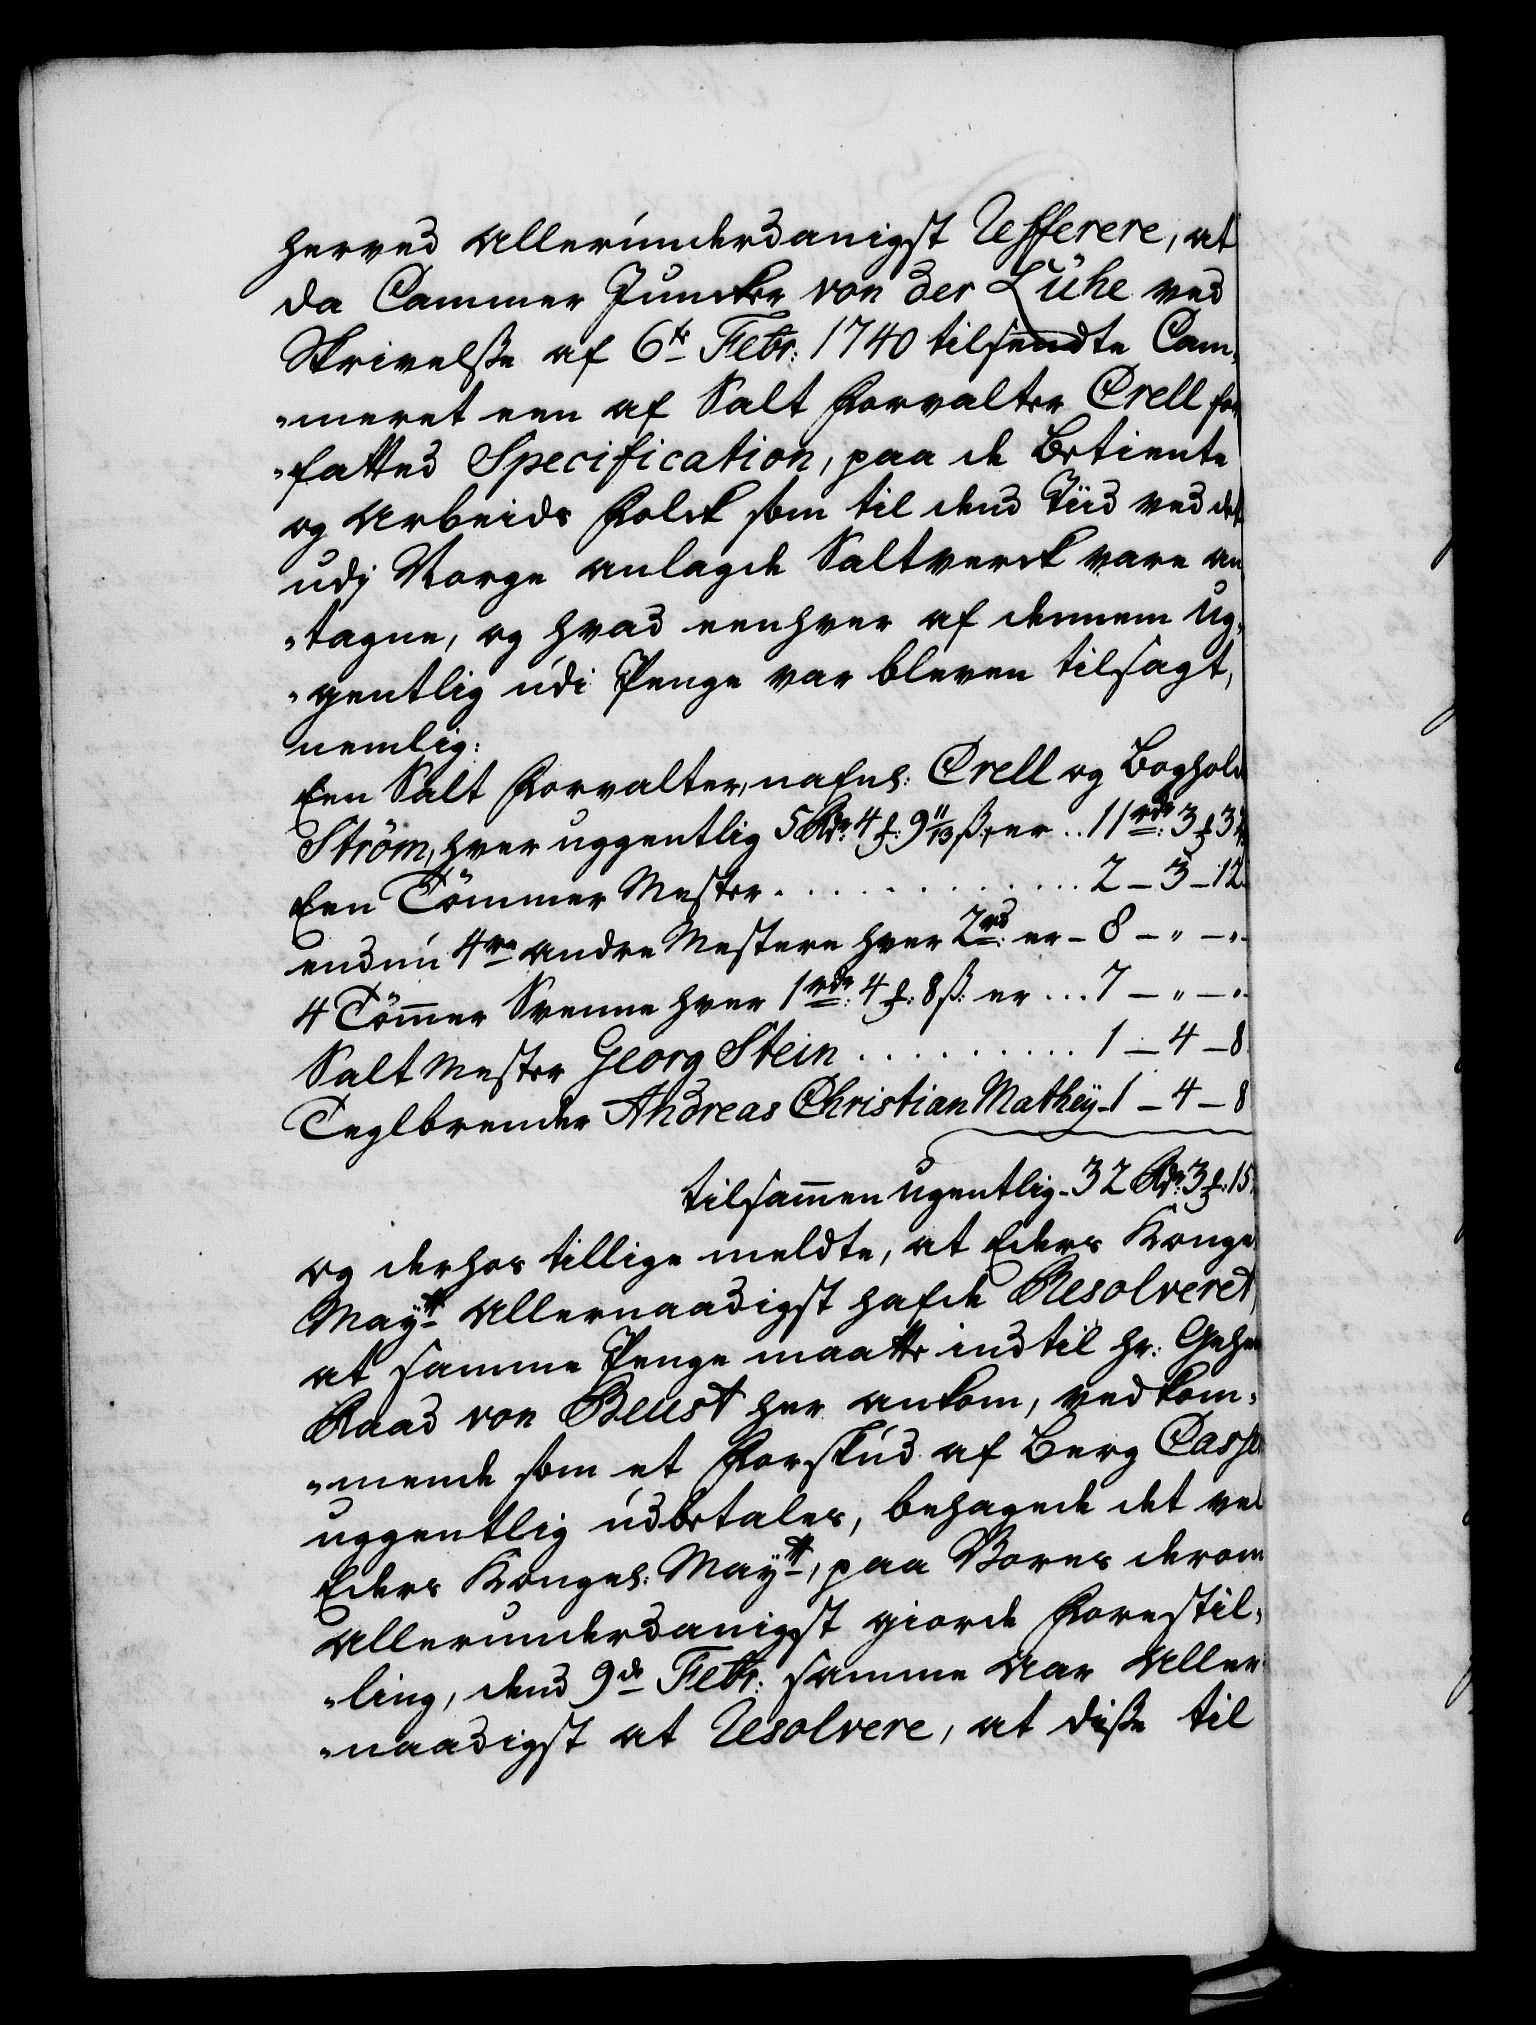 herved Allerunderdanigst Refferere, at
da Cammer Juncker von der Lühe ved
Skrivelsse af 6te Febr: 1740 tilsendte Cam,
"meret een af Salt Forvalter Crell for
"fatted Specification, paa de Betiente
og Arbeids Folck som til dend Tiid ved det
udj Norge anlagde Saltverck vare an
"tagne, og hvad eenhver af dennem Ug,
"gentlig udi Penge var bleven tilsagt,
nemlig:
Een Salt Forvalter, nafnl: Crell og Boghold
Ström, hver uggentlig 5 Rdr: 4 f: 9 11/13 ß, er .. 11 rdr: 3 f 3
Een Tömmer Mester . . . . . . . . . . . . . 2 – 3 – 12
endnu 4re andre Mestere hver 2 rd: er – 8 – " – "
4 Tömer Svenne hver 1 rdr: 4 f: 8 ß: er ... 7 – " – "
Salt Mester Georg Stein . . . . . . . . . . 1 – 4 – 8
Teglbrender Andreas Christian Mathey – 1 – 4 – 8
tilsamen ugentlig – 32 Rdr: 3 f: 15
og derhos tillige meldte, at Eders Konge
Maytt Allernaadigst hafde Resolveret,
at samme Penge maatte indtil hr: Gehei
Raad von Beust her ankom, vedkom,
"mende som et Forskud af Berg Casse
uggentlig udbetales, behagede det ved
Eders Kongel: Maytt, paa Vores derom
Allerunderdanigst giorde Forestil,
"ling, dend 9de Febr: samme Aar Aller
"naadigst at Resolvere, at disse til